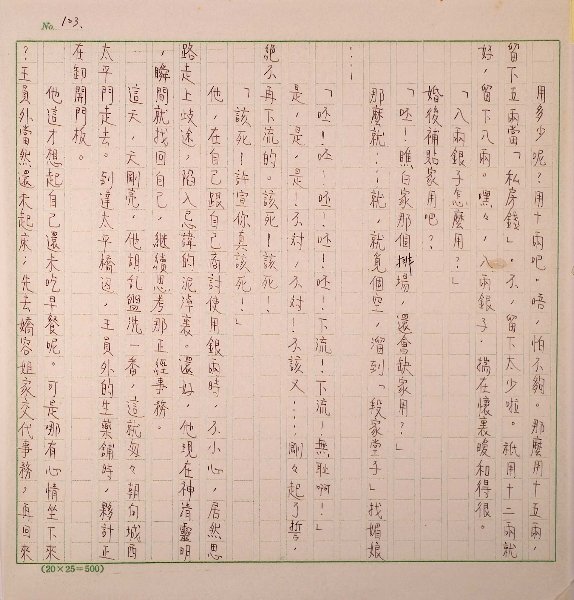 No. 103.
用多少呢？用十兩吧。唔，怕不夠。那麼用十五兩，
留下五兩當「私房錢」。不，留下太少啦。祇用十二兩就
好，留下八兩。嘿々，八兩銀子，揣在懷裏暖和得很。
「八兩銀子怎麼用？」
婚後補貼家用吧？
「呸！瞧白家那個排場，還會缺家用？」
那麼就……就，就覓個空，溜到「段家堂子」找媚娘
……
「呸！呸！呸！呸！下流！下流！無恥啊！」
是，是，是！不對，不對！不該又……剛々起了誓，
絕不再下流的。該死！該死！
「該死！許宣你真該死！」
他，在自己跟自己商討使用銀兩時，不小心，居然思
路走上歧途，陷入忌諱的泥淖裏。還好，他現在神清靈明
，瞬間就找回自己，繼續思考那正經事務。
這天，天剛亮，他胡亂盥洗一番，這就匆々朝向城西
太平門走去。到達太平橋邊，王員外的生藥鋪時，夥計正
在卸開門板。
他這才想起自己還未吃早餐呢。可是哪有心情坐下來
？王員外當然還未起床，先去嬌容姐家交代事務，再回來
(20×25=500)